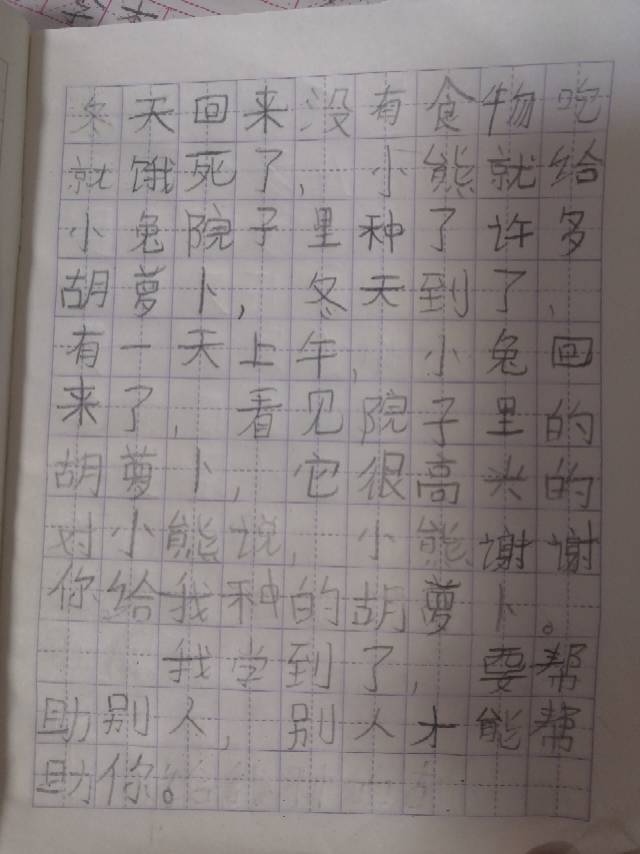 冬天回来没有食物吃
就饿死了，小熊就给
小兔院子里种了许多
胡萝卜，冬天到了，
有一天上午，小兔回
来了，看见院子里的
胡萝卜，它很高兴的
对小熊说，小熊谢谢
你给我种的胡萝卜。
我学到了，要帮
助别人，别人才能帮
助你。